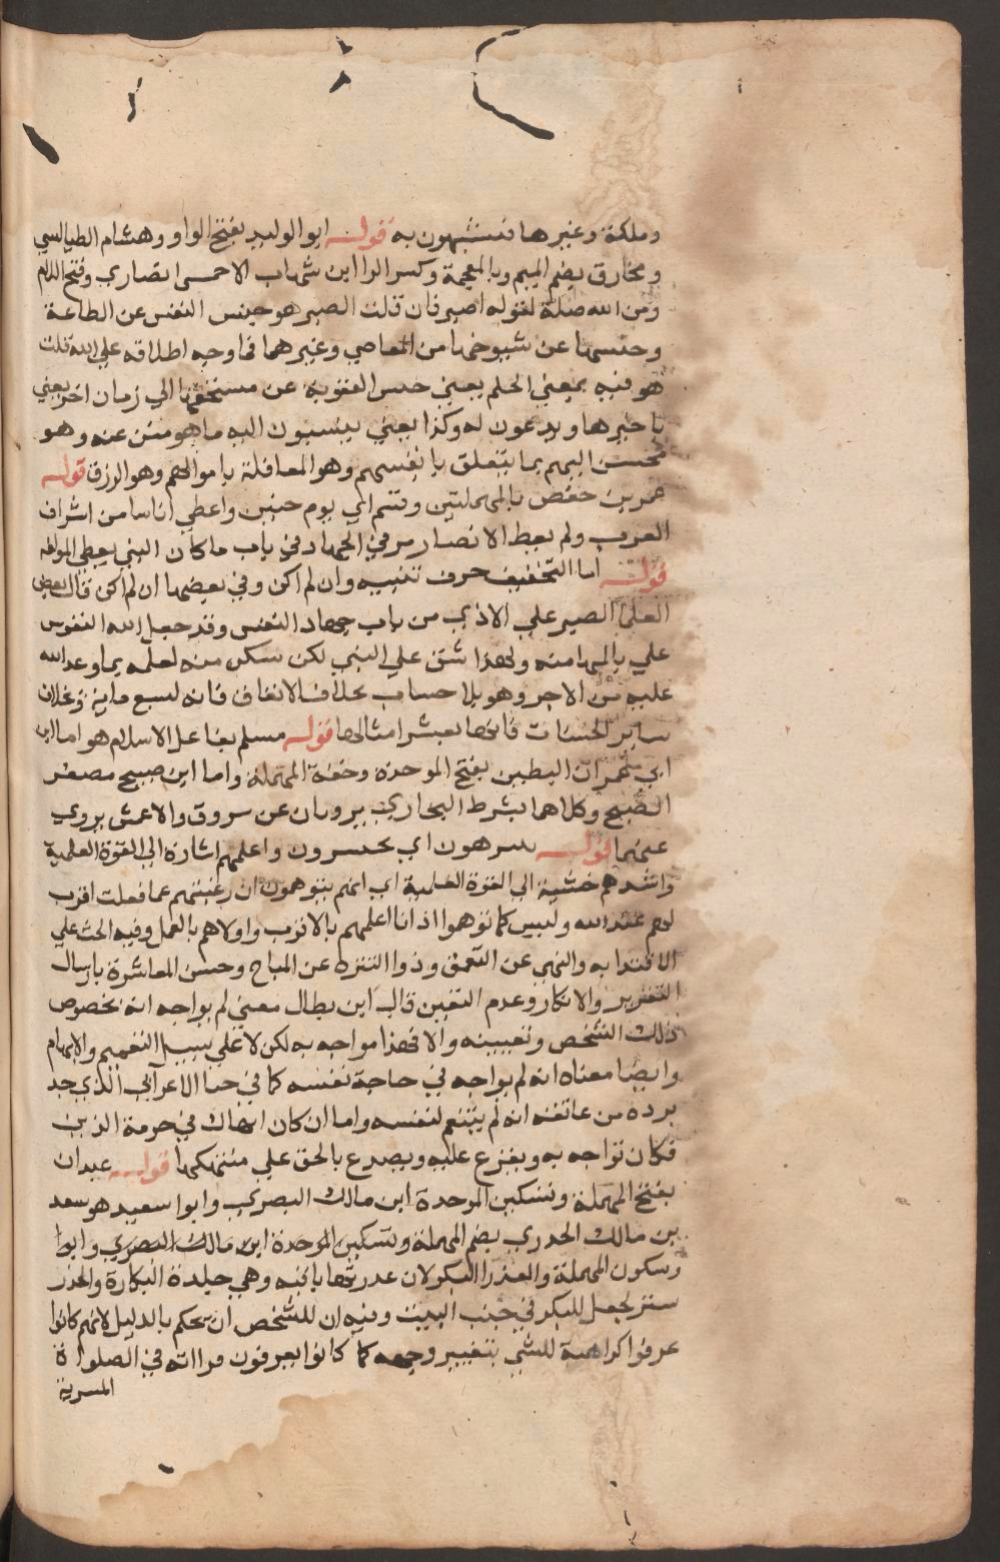 وملكة وغيرها فتشبهون به قوله ابو الوليد بفتح الواو وهشام الطيالسي
ومخارق بضم الميم وبالمعجمة وكسر الرا ابن شهاب الاحمسي انصاري وفتح اللام
ومن الله صلة لقوله اصبر فان قلت الصبر هو حبس النفس عن الطاعة
وحبسها عن شيوخها من المعاصي وغيرهما فما وجه اطلاقه علي الله قلت
هو فيه بمعني الحلم يعني حبس العقوبة عن مستحقها الي زمان اخر يعني
تاخيرها ويدعون له وكذا يعني ينسبون اليه ما هو منزه عنه وهو
محسن اليهم بما يتعلق بانفسهم وهو المعافاة باموالهم وهو الرزق قوله
عمر بن حفص بالمهملتين وقسم اي يوم حنين واعطي اناسا من اشراف
العرب ولم يعط الانصار مر في الجهاد في باب ما كان النبي يعطي المولفه
قوله اما التخفيف حرف تنبيه وان لم اكن وفي بعضها ان لم اكن قال بعض
العلما الصبر علي الاذي من باب جهاد النفس وقد جعل الله النفوس
علي بالمها منه ولهذا شق علي النبي لكن سكن منه لعلمه بما وعد الله
عليه من الاجر وهو بلا حساب بخلاف الانفاق فانه لسبع ماية وبخلاف
ساير الحسنات فانها بعشر امثالها قوله مسلم بفاعل الاسلام هو اما ابن
ابي عمران البطين بفتح الموحدة وخفة المهملة واما ابن صبيح مصغر
الصبح وكلاهما بشرط البخاري يرويان عن مسروق والاعمش يروي
عنهما قوله يتنزهون اي يحترزون واعلمهم اشارة الي القوة العلمية
واشدهم خشية الي القوة العملية اي انهم يتوهمون ان رغبتهم عما فعلت اقرب
لهم عند الله وليس كما توهموا اذ انا اعلمهم بالاقرب واولاهم بالعمل وفيه الحث علي
الاقتدا به والنهي عن التعمق وذوا التنزه عن المباح وحسن المعاشرة بارسال
التعزير والانكار وعدم التعين قال ابن بطال معني لم يواجه انه بخصوص
ذلك الشخص وتعيينه والا فهذا مواجه به لكن لا علي سبيل التعميم والابهام
وايضا معناه انه لم يواجه في حاجة نفسه كما في حبا الاعرابي الذي جد
برده من عاتقه انه لم ينتقم لنفسه واما ان كان انتهاك في حرمة الدين
فكان تواجه به ويفزع عليه ويصدع بالحق علي منتهكها قوله عبدان
بفتح المهملة وتسكين الموحدة ابن مالك البصري وابوا سعيد هو سعد
بن مالك الخدري بضم المهملة وتسكين الموحدة ابن مالك البصري وابوا
وسكون المهملة والعذرا البكر لان عذرتها باقيه وهي جلدة البكارة والخدر
ستر يجعل للبكر في جنب البيت وفيه ان للشخص ان يحكم بالدليل لانهم كانوا
عرفوا كراهية للشي بتغيير وجهه كما كانوا يعرفون قراته في الصلواة
السرية